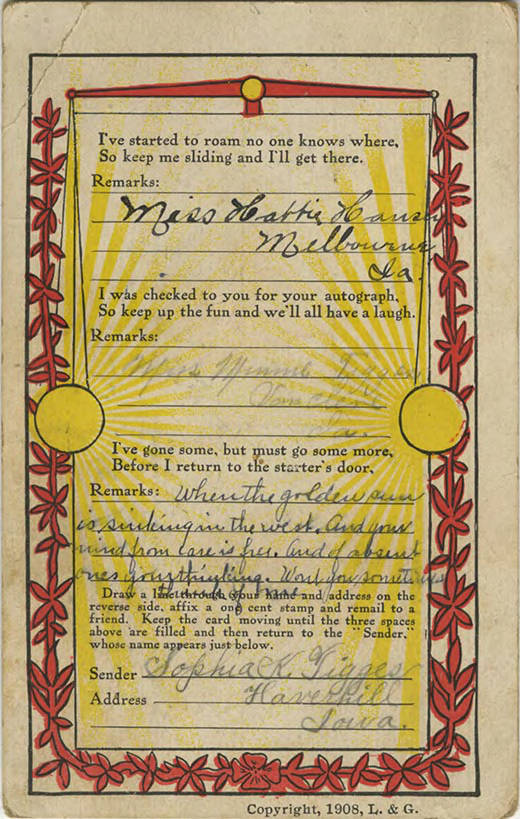 I've started to roam no one knows where,
So keep me sliding and I'll get there.
Remarks:
Miss Hattie Hansen
Melbourne
Ia.
I was checked to you for your autograph,
So keep up the fun and we'll all have a laugh.
Remarks:
Miss Minnie Tigges
Ia.
I've gone some, but must go some more,
Before I return to the starter's door,
Remarks: When the golden sun
is sinking in the west. And your
mind from care is free. And of absent
ones your thinking. Wont you sometimes
Draw a line through your name and address on the
reverse side, affix a one cent stamp and remail to a
friend. Keep the card moving until the three spaces
above are filled and then return to the "Sender,"
whose name appears just below.
Sender Sophia K. Tigges
Address Haverhill
Iowa.
Copyright, 1908, L. & G.